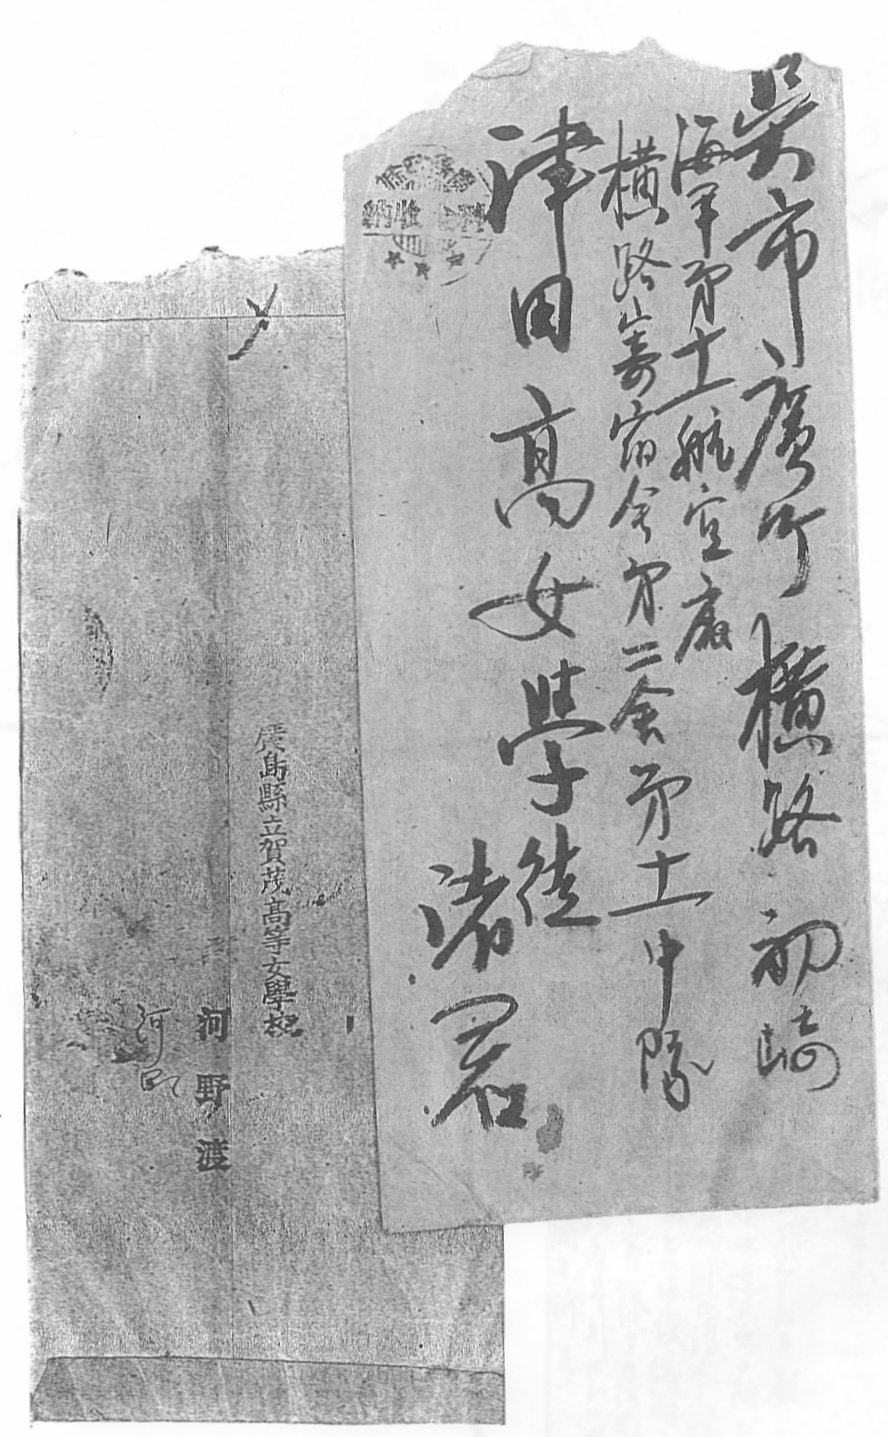 呉市廣町横路初崎
海軍第十一航空廠
横路嵜宿舎第二舎第十一中隊
津田高女學徒
諸君
廣島縣立賀茂高等女學校
河野渡